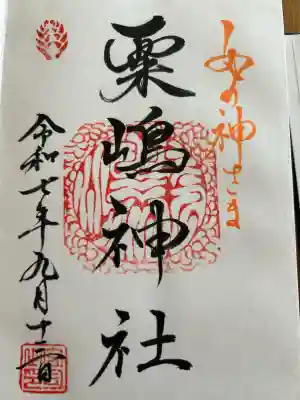 あわの神さま
粟嶋神社
令和七年九月十二日